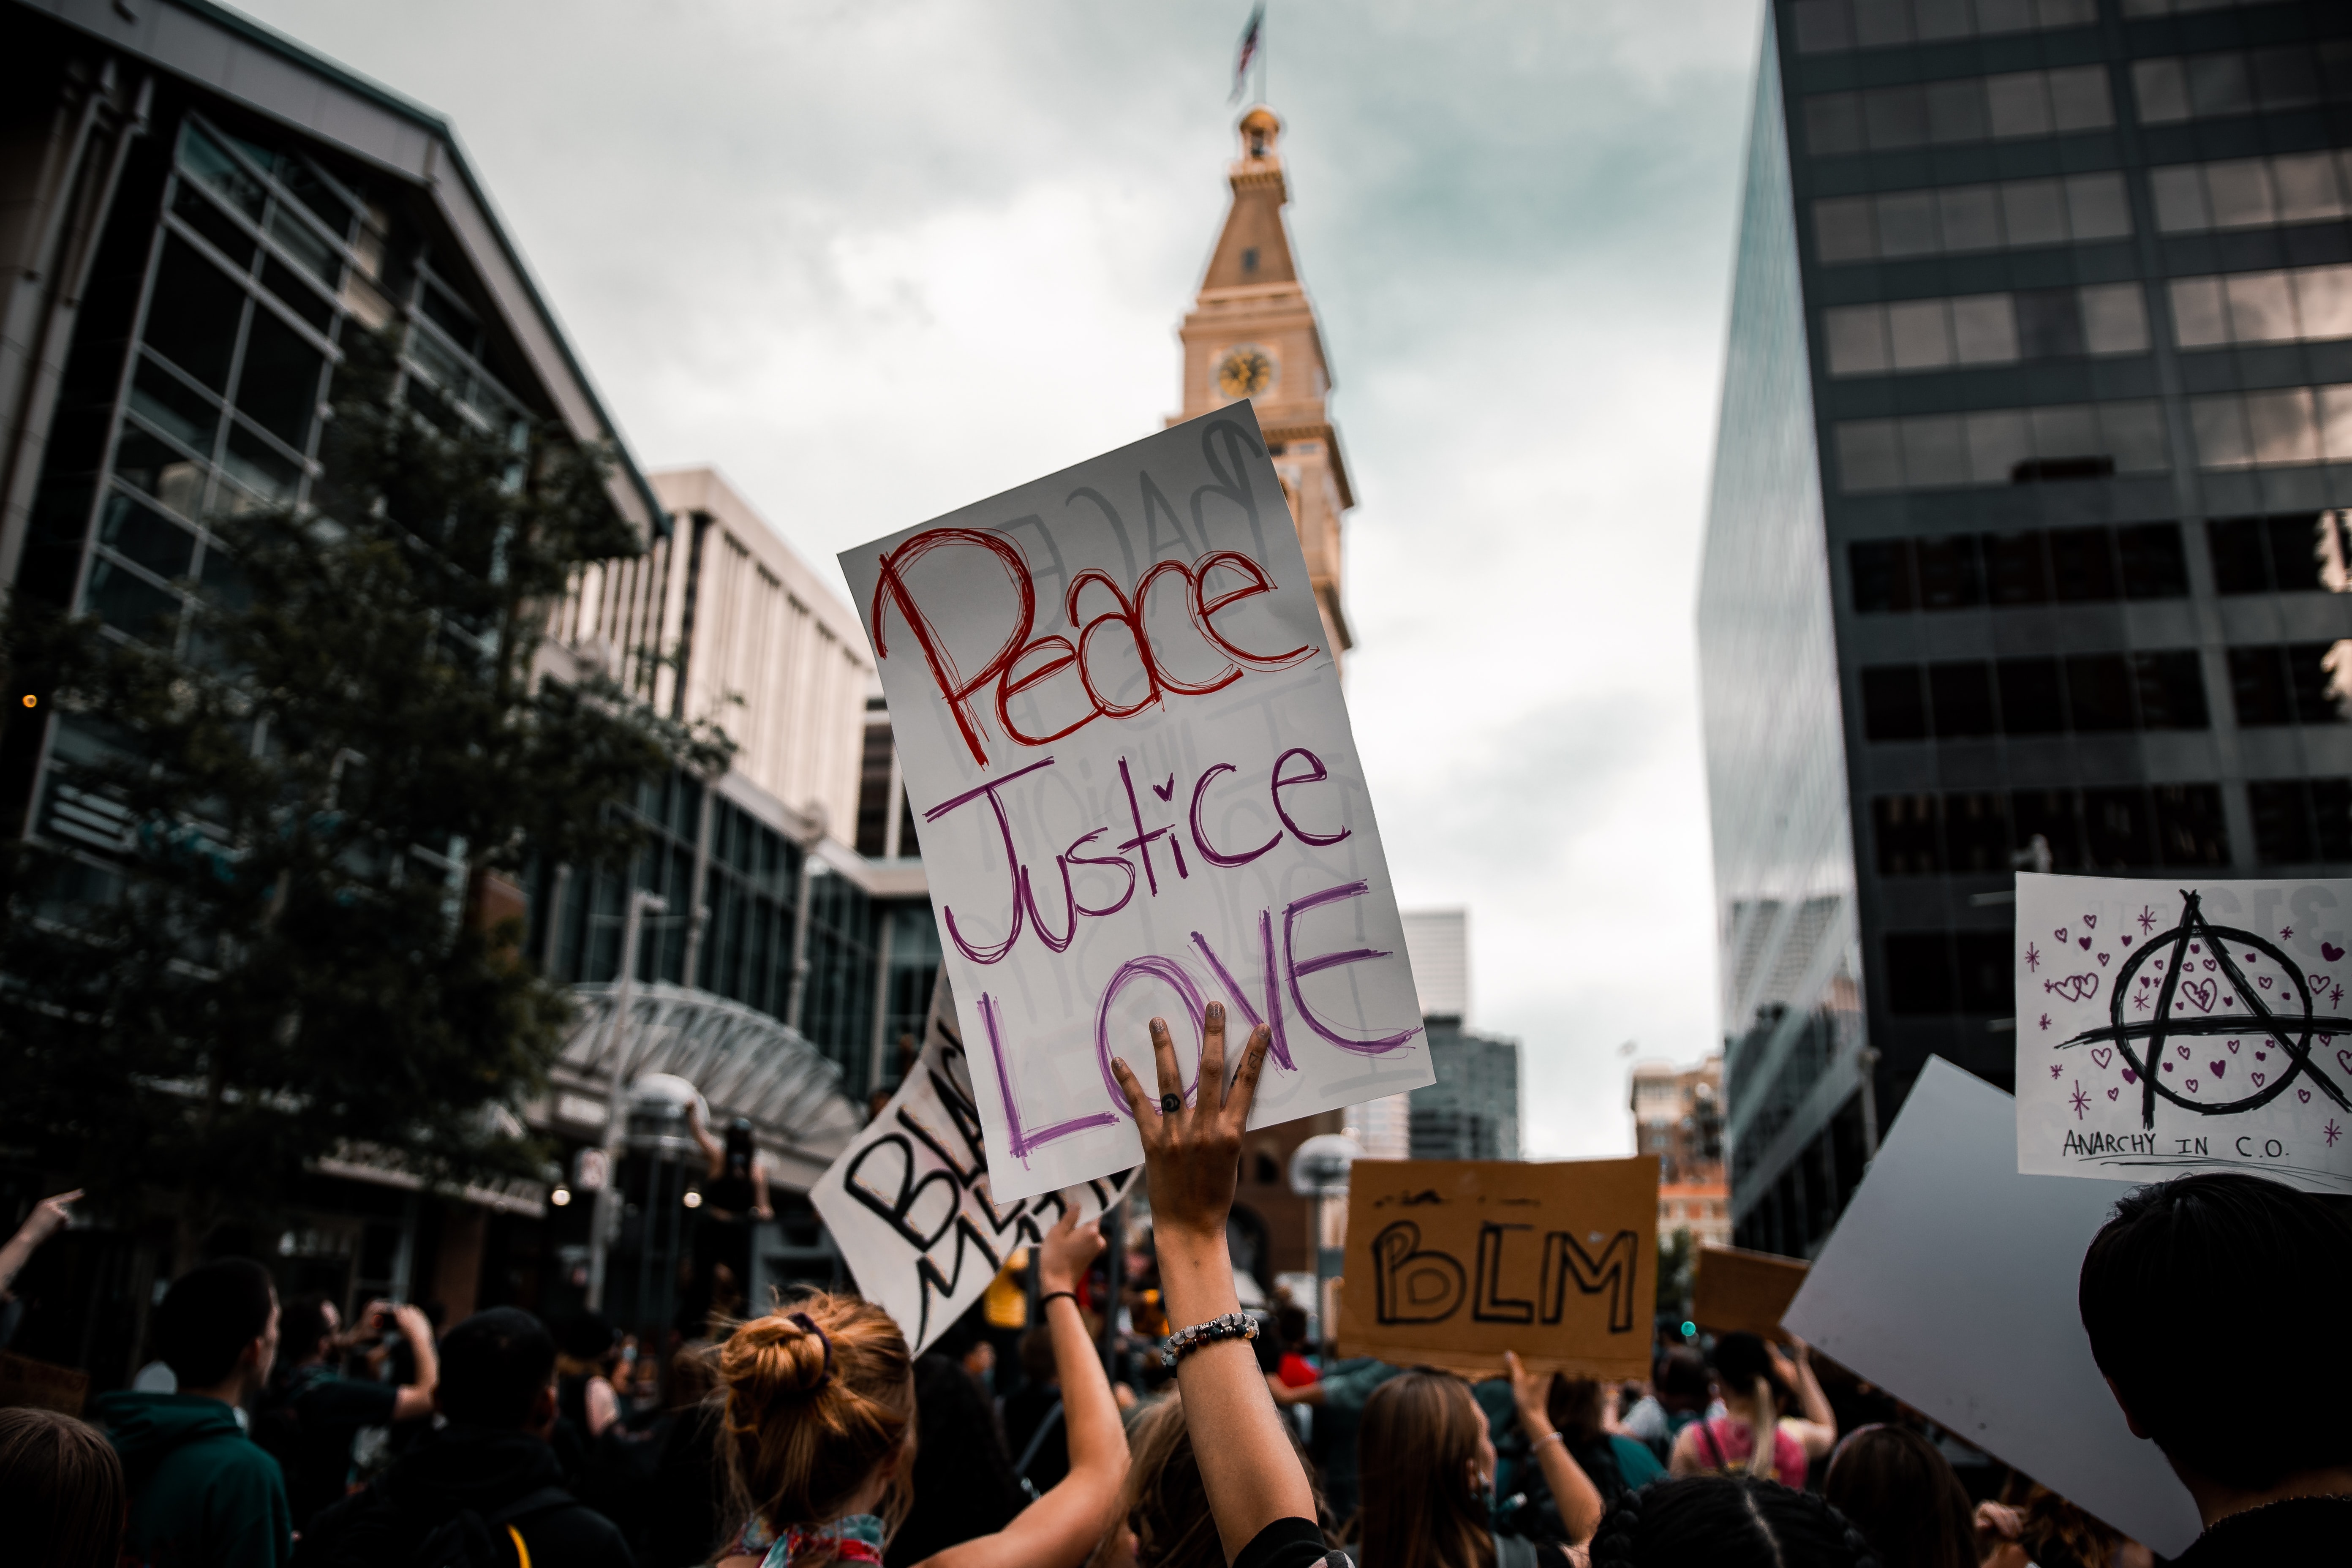 Peace
Justice
LOVE
BLACK
BLM
ANARCHY IN C.O.